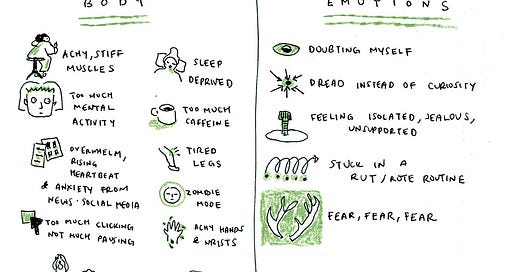 BODY
ACHY, STIFF
MUSCLES
TOO MUCH
MENTAL
ACTIVITY
OVERWHELM,
RISING
HEARTBEAT
& ANXIETY FROM
NEWS · SOCIAL MEDIA
TOO MUCH CLICKING
NOT MUCH PAUSING
SLEEP
DEPRIVED
TOO MUCH
CAFFEINE
TIRED
LEGS
ZOMBIE
MODE
ACHY HANDS
& WRISTS
EMOTIONS
DOUBTING MYSELF
DREAD INSTEAD OF CURIOSITY
FEELING ISOLATED, JEALOUS,
UNSUPPORTED
STUCK IN A
RUT / ROTE ROUTINE
FEAR, FEAR, FEAR